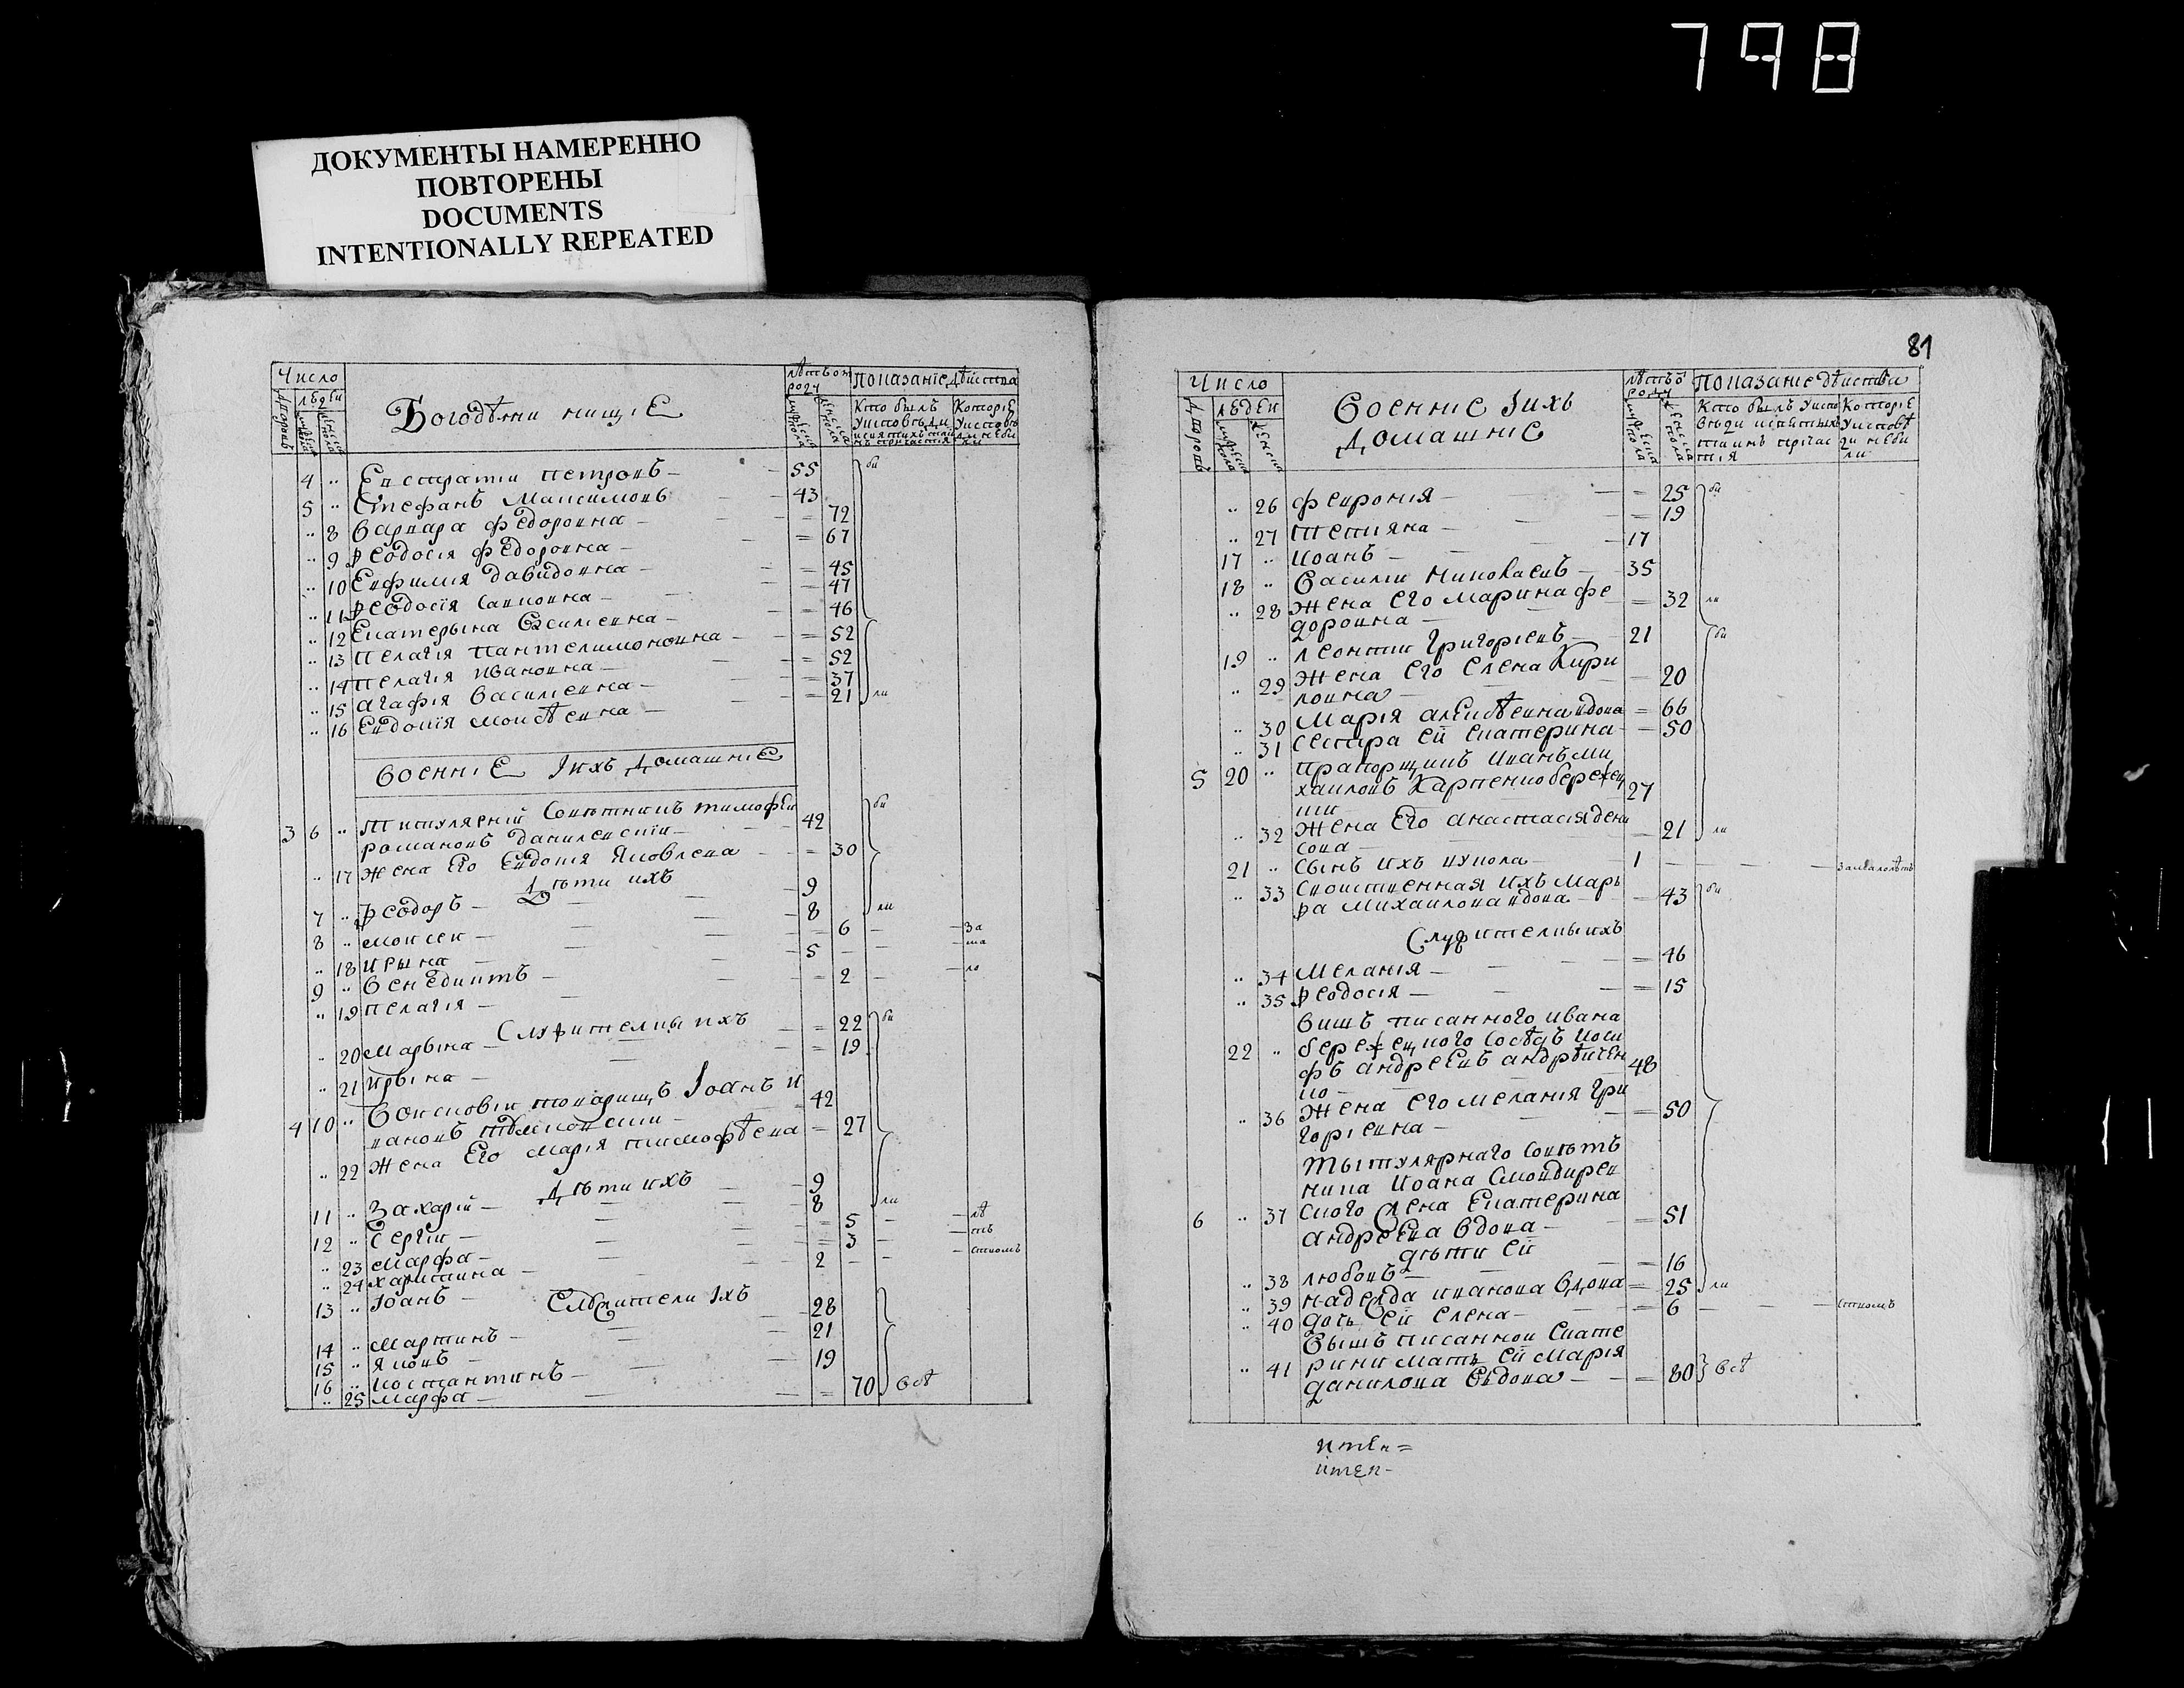 798
ДОКУМЕНТЫ НАМЕРЕННО
ПОВТОРЕНЫ
DOCUMENTS
INTENTIONALLY REPEATED
Число
лѣтъ от роду
показаніе дѣиства
дворовъ
людеи
Богодѣлни нищіе
Кто былъ
Которіе
4 " Евстратии петровъ — 55 бы
5 " Стефанъ Максимовъ — 43
" 8 варвара федоровна — = 72
" 9 Ѳеодосія федоровна — = 67
" 10 Евфимия давидовна — = 45
" 11 Ѳеодосія савовна — = 47
" 12 Екатерына Василиевна — = 46
" 13 пелагія пантелимоновна — = 52
" 14 пелагія ивановна — = 52
" 15 агафія василиевна — = 37
" 16 Евдокія моисѣевна — = 21 ли
военніе Іихъ домашніе
3 6 " титулярній Совѣтникъ тимофеи
романовъ данилевскіи — 42 бы
" 17 жена Его Евдокія Яковлева — = 30
дѣти ихъ
7 " Ѳеодоръ — 9
8 " моисеи — 8 ли
" 18 Ирына — = 6 — за
9 " венедиктъ — 5 — ма
" 19 пелагія — = 2 — ло
Служителки ихъ
" 20 марына — = 22 бы
" 21 ирына — = 19
4 10 " воисковіи товарищъ Іоанъ и
вановъ — 42
" 22 жена Его марія тимофѣева = 27
дѣти ихъ
11 " Захаріи — 9
12 " Сергіи — 8 ли
" 23 марфа — = 5 — лѣ
" 24 харитина — = 3 — тс
13 " Іоанъ — 2 — ством
Служители Іхъ
14 " мартинъ — 28
15 " яковъ — 21
16 " костантинъ — 19
" 25 марфа — = 70 всѣ
81
Число
лѣтъ о роду
показаніе дѣиства
дворовъ
людеи
военніе Іихъ
домашніе
Кто былъ
Которіе
" 26 феврония — = 25 бы
" 27 тетияна — = 19
17 " иоанъ — 17
18 " василии николаевъ — 35
" 28 жена его марина фе
доровна — = 32 ли
19 " леонтии григоріевъ — 21 бы
" 29 жена его елена Кири
ловна — = 20
" 30 марія алеѯѣевна вдова = 66
" 31 сестра еи екатерина — = 50
5 20 " прапорщикъ иванъ ми
хаиловъ Карпенко бережец
кии 27
" 32 жена Его анастасія дени
сова — = 21 ли
21 " сынъ ихъ никола — 1 — за малолѣт
" 33 своиственная ихъ мар
ѳа михаилова вдова — = 43 бы
Служителки ихъ
" 34 мелания — = 46
" 35 Ѳеодосія — = 15
вишъ писанного ивана
22 " бережецкого сосѣдъ иоси
фъ андреевъ андрѣиен
ко — 48
" 36 жена его мелания гри
горіевна — = 50
тытулярнаго совѣт
ника иоана
6 " 37 ского жена екатерина
андреева вдова — = 51
дѣти еи
" 38 любовъ — = 16
" 39 надежда иванова вдова = 25 ли
" 40 дочь еи елена — = 6 — ством
вышъ писаннои екате
" 41 рини мать еи марія
данилова вдова — = 80 всѣ